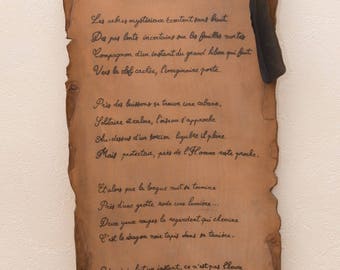 Les arbres mystérieux écoutent sans bruit
Des pas lents incertains sur les feuilles mortes
Compagnon d'un instant du grand hibou qui fuit
Vers la clef cachée, l'imaginaire porte.
Près des buissons se trouve une cabane,
Solitaire et calme, l'ourson s'approche
Au-dessus d'un sorcier lugubre il plane
Mais protecteur, près de l'Homme reste proche.
Et alors que la longue nuit se termine
Près d'une grotte rode une lumière...
Deux yeux rouges le regardent qui chemine
C'est le dragon noir tapis dans sa tanière.
un instant, ce n'est pas l'heure